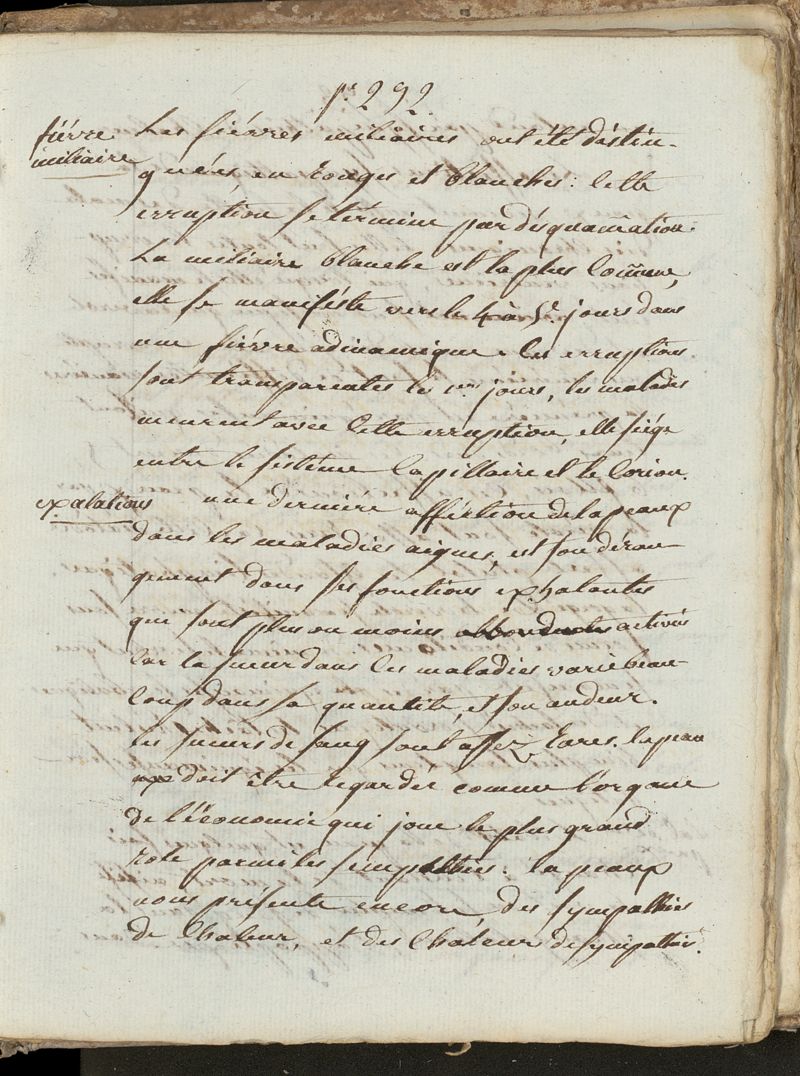 pe 292.
fiévre miliaire
Les fiévres miliaires ont été déstin-
guées en rouges et blanches : Cette
erruption se términe par désquam̃ation.
La miliaire blanche est la plus Com̃une,
elle se maniféste vers le 4 à 5e. jours dans
une fiévre adinamique. les erruptions
sont transparentes les 1ers jours, les malades
meurent avec Cette erruption, elle siége
entre le sistéme Capillaire et le Corion.
exalations
une derniére afféction de la peaux
dans les maladies aigues, est son déran-
gement dans ses fonctions exhalantes
qui sont plus ou moins abbondantes activés
Car la sueur dans les maladies varie beau-
coup dans sa quantité, et son audeur.
les sueurs de sang sont assez rares. la peau
doit être regardée comme l'organe
de l'économie qui joue le plus grand
role parmi les simpathies. la peaux
nous présente encore, des sympathies
de Chaleur, et des Chaleur de sympathie.